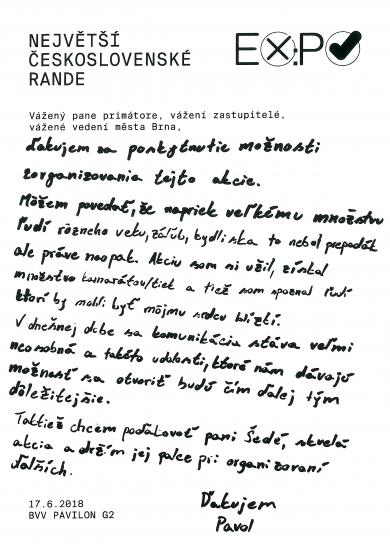 NEJVĚTŠÍ
ČESKOSLOVENSKÉ
RANDE
EX:PO
Vážený pane primátore, vážení zastupitelé,
vážené vedení města Brna,
ďakujem za poskytnutie možnosti
zorganizovania tejto akcie.
Môžem povedať, že napriek veľkému množstvu
ľudí rôzneho veku, záľub, bydliska to nebol prepadák
ale práve naopak. Akciu som si užil, získal
množstvo kamarátov/tiek a tiež som spoznal ľudí
ktorí by mohli byť môjmu srdcu blízki.
V dnešnej dobe sa komunikácia stáva veľmi
neosobná a takéto udalosti, ktoré nám dávajú
možnosť sa otvoriť budú čím ďalej tým
dôležitejšie.
Taktiež chcem poďakovať pani Šedé, skvelá
akcia a držím jej palce pri organizovaní
ďalších.
17.6.2018
BVV PAVILON G2
Ďakujem
Pavol